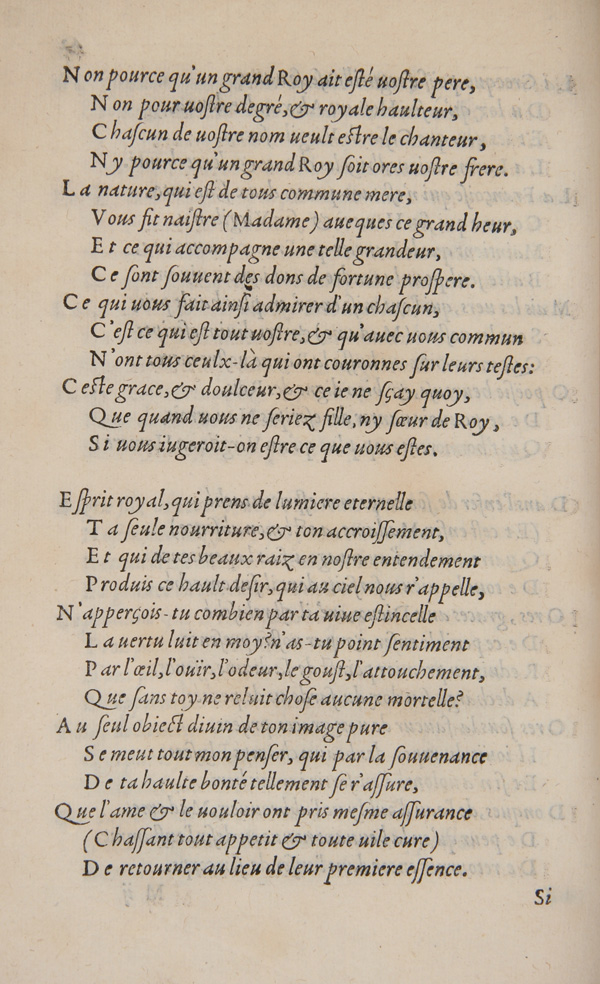 Non pource qu'un grand Roy ait eſté uoſtre pere,
Non pour uoſtre degré, & royale haulteur,
Chaſcun de uoſtre nom ueult eſtre le chanteur,
Ny pource qu'un grand Roy ſoit ores uoſtre frere.
La nature, qui eſt de tous commune mere,
Vous fit naiſtre (Madame) aueques ce grand heur,
Et ce qui accompagne une telle grandeur,
Ce ſont ſouuent des dons de fortune proſpere.
Ce qui uous fait ainſi admirer d'un chaſcun,
C'eſt ce qui eſt tout uoſtre, & qu'auec uous commun
N'ont tous ceulx-là qui ont couronnes ſur leurs teſtes:
Ceſte grace, & doulceur, & ce ie ne ſçay quoy,
Que quand uous ne ſeriez fille, ny ſœur de Roy,
Si uous iugeroit-on eſtre ce que uous eſtes.
Eſprit royal, qui prens de lumiere eternelle
Ta ſeule nourriture, & ton accroiſſement,
Et qui de tes beaux raiz en noſtre entendement
Produis ce hault deſir, qui au ciel nous r'appelle,
N'apperçois-tu combien par ta uiue eſtincelle
La uertu luit en moy? n'as-tu point ſentiment
Par l'œil, l'ouïr, l'odeur, le gouſt, l'attouchement,
Que ſans toy ne reluit choſe aucune mortelle?
Au ſeul obiect diuin de ton image pure
Se meut tout mon penſer, qui par la ſouuenance
De ta haulte bonté tellement ſe r'aſſure,
Que l'ame & le uouloir ont pris meſme aſſurance
(Chaſſant tout appetit & toute uile cure)
De retourner au lieu de leur premiere eſſence.
Si